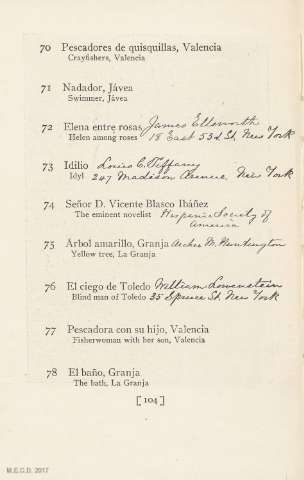 70 Pescadores de quisquillas, Valencia
Crayfishers, Valencia
71 Nadador, Jávea
Swimmer, Jávea
72 Elena entre rosas James Ellsworth
Helen among roses 18 East 53d St, New York
73 Idilio Louis C. Tiffany
Idyl 247 Madison Avenue New York
74 Señor D. Vicente Blasco Ibáñez
The eminent novelist Hispanic Society of
America
75 Arbol amarillo, Granja Archer M. Huntington
Yellow tree, La Granja
76 El ciego de Toledo William Lowenstein
Blind man of Toledo 35 Spruce St. New York
77 Pescadora con su hijo, Valencia
Fisherwoman with her son, Valencia
78 El baño, Granja
The bath, La Granja
[ 104 ]
M.E.C.D. 2017